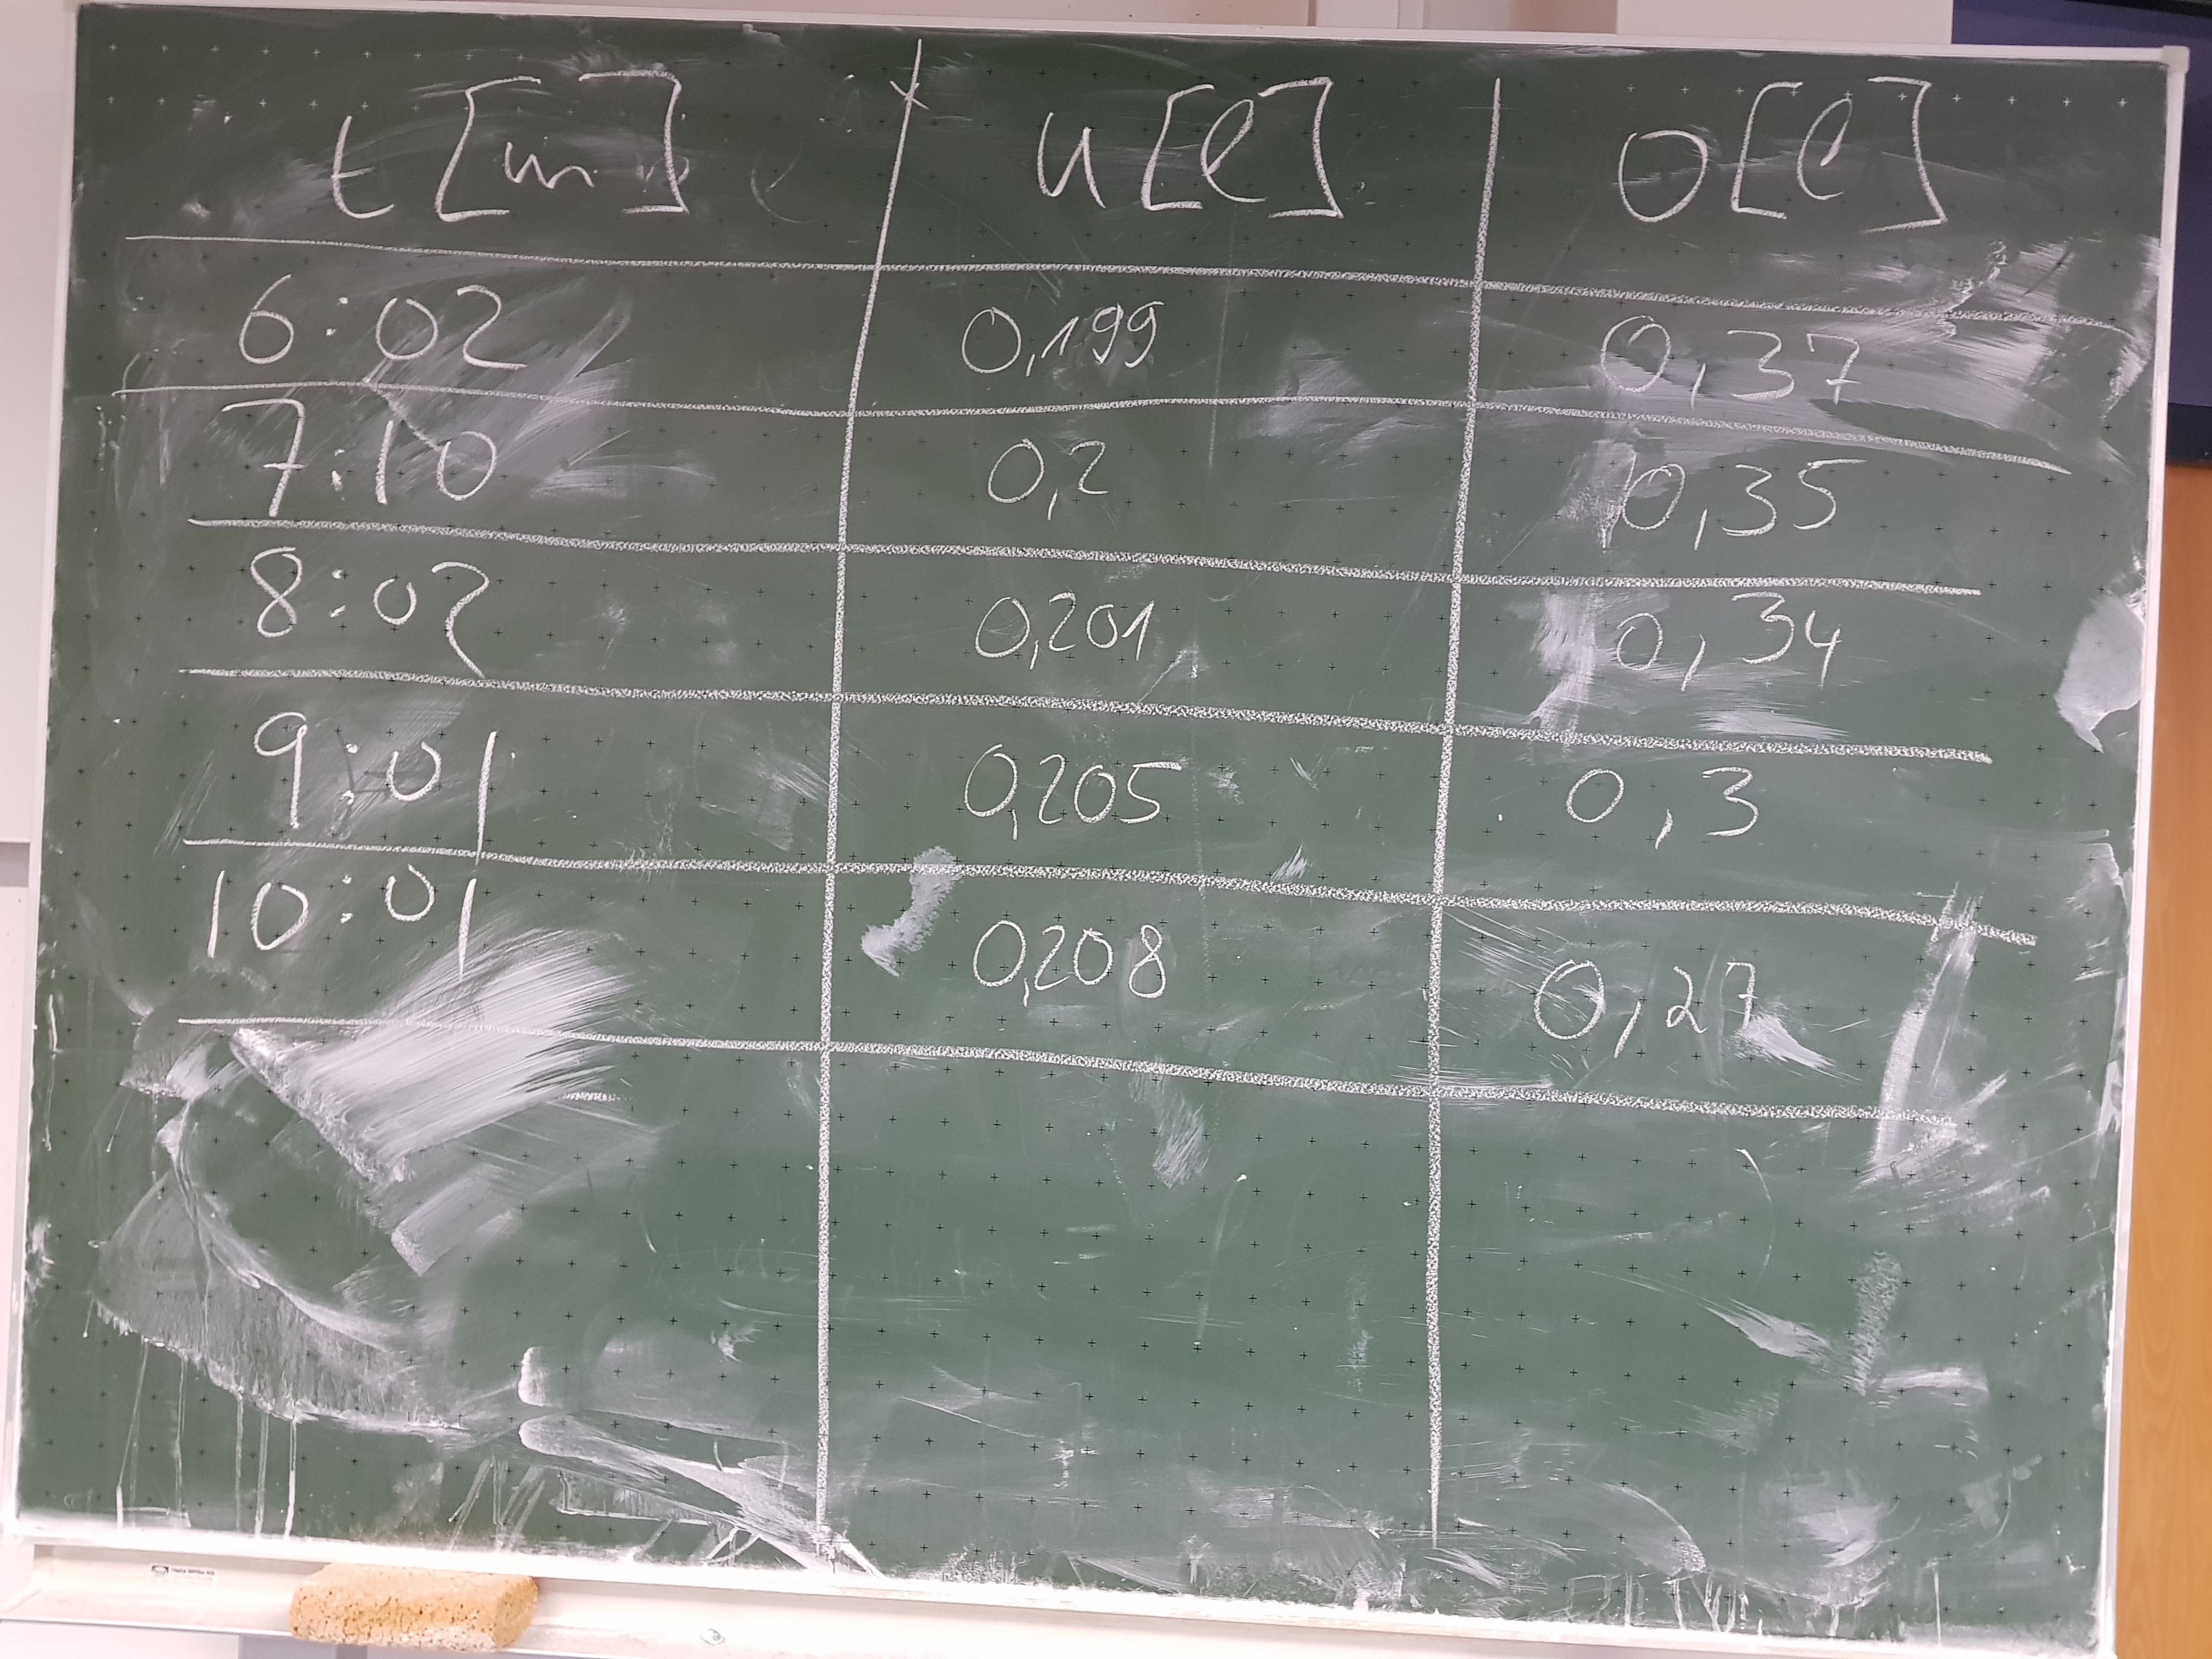 t [m] u [l] o [l]
6:02 0,199 0,37
7:10 0,2 0,35
8:02 0,201 0,34
9:01 0,205 0,3
10:01 0,208 0,27